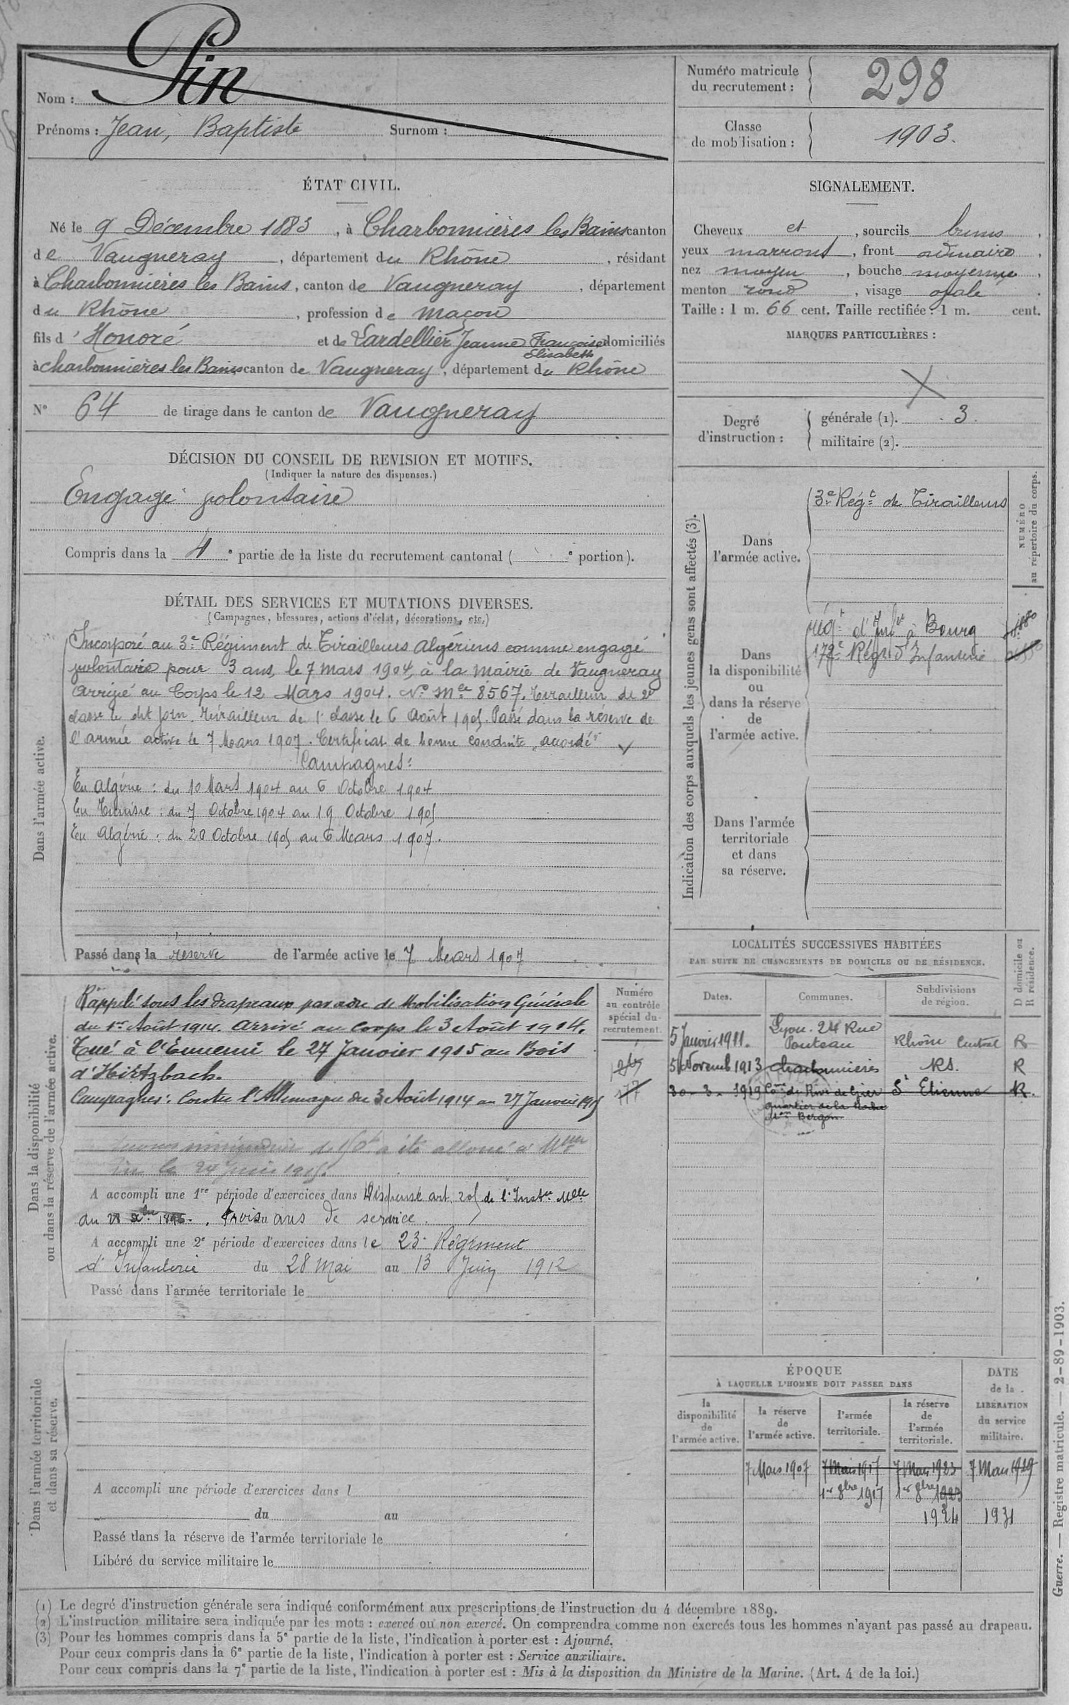 Nom : Pin
Prénoms : Jean, Baptiste Surnom :
Numéro matricule du recrutement : 298
Classe de mobilisation : 1903.
ÉTAT CIVIL.
Né le 9 Décembre 1883, à Charbonnières les Bains canton
de Vaugneray, département du Rhône, résidant
à Charbonnières les Bains, canton de Vaugneray, département
du Rhône, profession de maçon
fils d'Honoré et de Lardellier Jeanne Françoise Elisabeth domiciliés
à charbonnières les Bains canton de Vaugneray, département du Rhône
N° 64 de tirage dans le canton de Vaugneray
SIGNALEMENT.
Cheveux et, sourcils bruns,
yeux marrons, front ordinaire,
nez moyen, bouche moyenne,
menton rond, visage ovale.
Taille : 1 m. 66 cent. Taille rectifiée : 1 m. cent.
MARQUES PARTICULIÈRES :
X
Degré d'instruction : générale (1). 3.
militaire (2).
DÉCISION DU CONSEIL DE REVISION ET MOTIFS.
(Indiquer la nature des dispenses.)
Engagé volontaire
Compris dans la 4e partie de la liste du recrutement cantonal ( e portion).
DÉTAIL DES SERVICES ET MUTATIONS DIVERSES.
(Campagnes, blessures, actions d'éclat, décorations, etc.)
Dans l'armée active.
Incorporé au 3e Régiment de Tirailleurs Algériens comme engagé
volontaire pour 3 ans, le 7 mars 1904, à la mairie de Vaugneray
Arrivé au Corps le 12 Mars 1904. N° Mle 8567. Tirailleur de 2e
classe le dit jour. Tirailleur de 1e classe le 6 Août 1905. Passé dans la réserve de
l'armée active le 7 Mars 1907. Certificat de bonne conduite "accordé"
Campagnes :
En Algérie : du 10 Mars 1904 au 6 Octobre 1904
En Tunisie : du 7 Octobre 1904 au 19 Octobre 1905
En Algérie : du 20 Octobre 1905 au 6 Mars 1907.
Passé dans la réserve de l'armée active le 7 Mars 1907
Indication des corps auxquels les jeunes gens sont affectés (3).
NUMÉRO au répertoire du corps.
Dans l'armée active.
3e Régt de Tirailleurs
Dans la disponibilité ou dans la réserve de l'armée active.
régt d'Infie à Bourg
172e Régt d'Infanterie
Dans l'armée territoriale et dans sa réserve.
Dans la disponibilité ou dans la réserve de l'armée active.
Numéro au contrôle spécial du recrutement.
Rappelé sous les drapeaux par ordre de Mobilisation Générale
du 1er Août 1914. Arrivé au Corps le 3 Août 1914.
Tué à l'Ennemi le 27 Janvier 1915 au Bois
d'Hirtzbach.
Campagnes : Contre l'Allemagne du 3 Août 1914 au 27 Janvier 1915
a été alloué à Mme
Pin le 24 Juin 1915.
A accompli une 1re période d'exercices dans Dispensé art. 205 de l'Inston Mle
au trois ans de service.
A accompli une 2e période d'exercices dans le 23e Régiment
d'Infanterie du 28 Mai au 13 Juin 1912
Passé dans l'armée territoriale le
LOCALITÉS SUCCESSIVES HABITÉES
PAR SUITE DE CHANGEMENTS DE DOMICILE OU DE RÉSIDENCE.
D domicile ou R résidence.
Dates. Communes. Subdivisions de région.
5 Janvier 1911. Lyon. 24 Rue Pouteau Rhône Central R
5 Novemb 1913 Charbonnières RS. R
30 - 3 - 1919 Cne de Rive de Gier St Etienne R.
ÉPOQUE
À LAQUELLE L'HOMME DOIT PASSER DANS
la disponibilité de l'armée active. la réserve de l'armée active. l'armée territoriale. la réserve de l'armée territoriale.
DATE de la LIBÉRATION du service militaire.
7 Mars 1907 7 Mars 1917 7 Mars 1923 7 Mars 1929
1er 8bre 1917 1er 8bre 1923
1924 1931
Dans l'armée territoriale et dans sa réserve.
A accompli une période d'exercices dans l
du au
Passé dans la réserve de l'armée territoriale le
Libéré du service militaire le
(1) Le degré d'instruction générale sera indiqué conformément aux prescriptions de l'instruction du 4 décembre 1889.
(2) L'instruction militaire sera indiquée par les mots : exercé ou non exercé. On comprendra comme non exercés tous les hommes n'ayant pas passé au drapeau.
(3) Pour les hommes compris dans la 5e partie de la liste, l'indication à porter est : Ajourné.
Pour ceux compris dans la 6e partie de la liste, l'indication à porter est : Service auxiliaire.
Pour ceux compris dans la 7e partie de la liste, l'indication à porter est : Mis à la disposition du Ministre de la Marine. (Art. 4 de la loi.)
Guerre. — Registre matricule. — 2-89-1903.